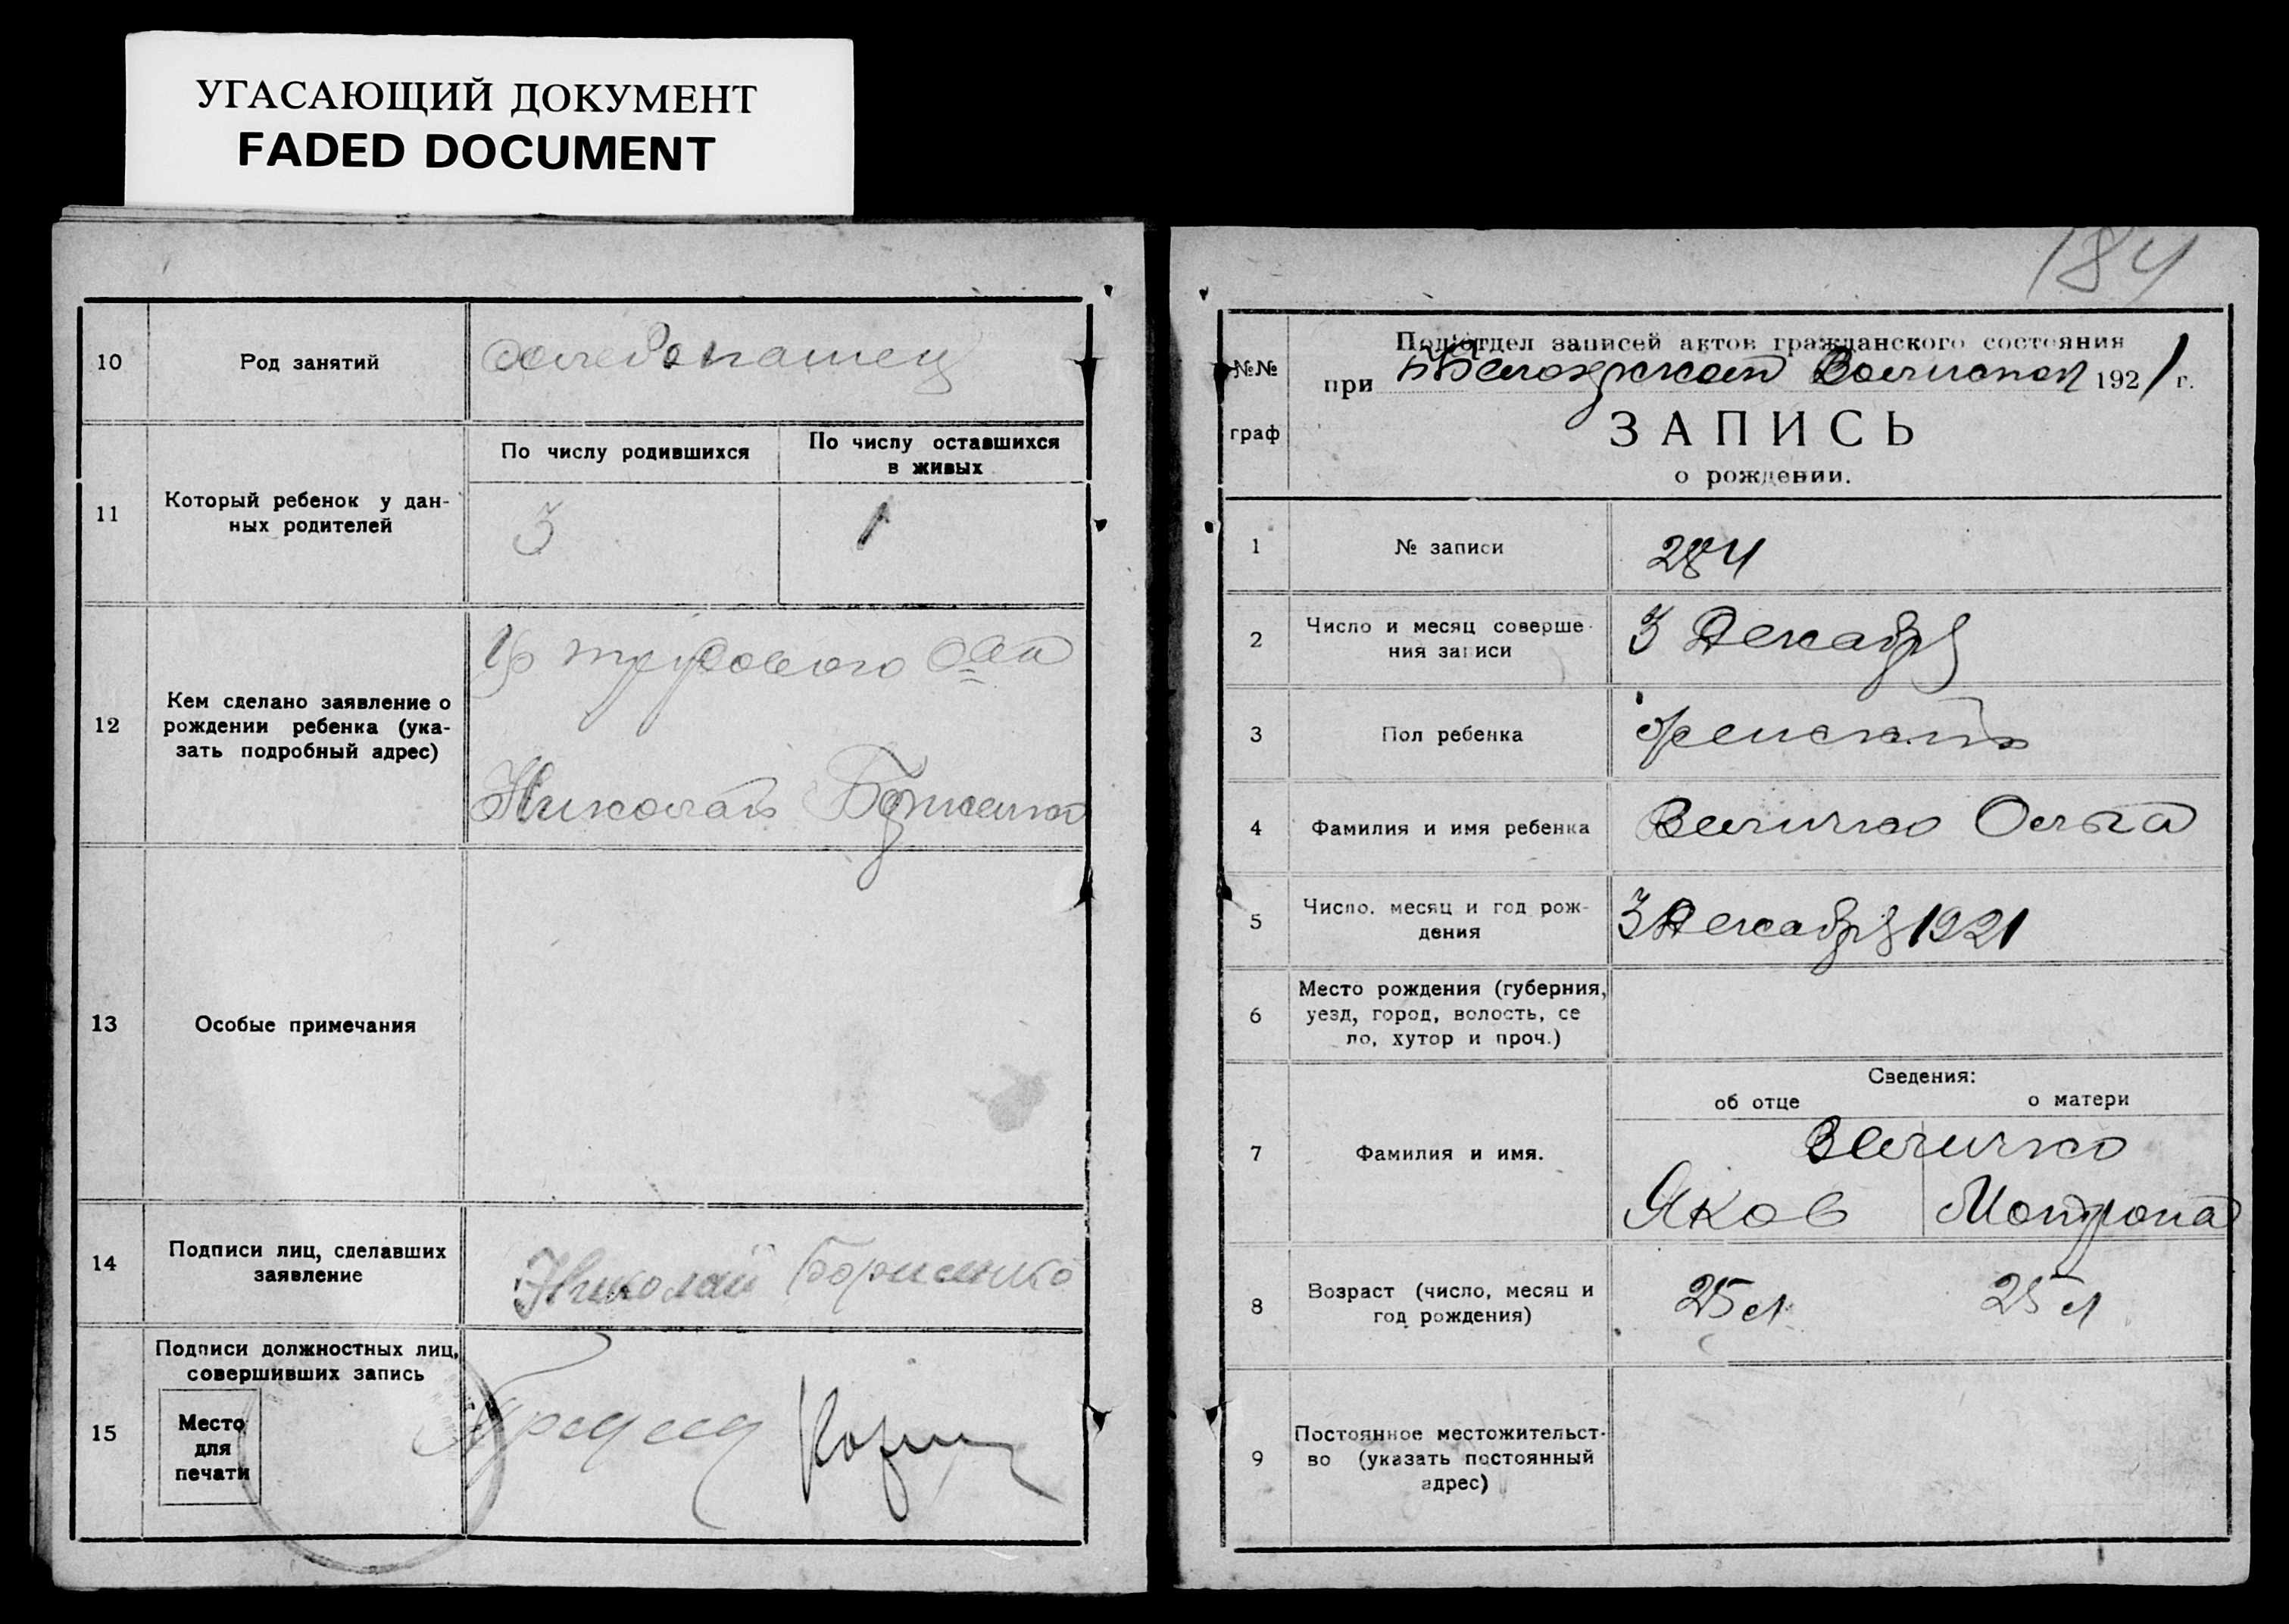 УГАСАЮЩИЙ ДОКУМЕНТ
FADED DOCUMENT
10
Род занятий
хлебопашец
11
Который ребенок у дан-
ных родителей
По числу родившихся
По числу оставшихся
в живых
3
1
12
Кем сделано заявление о
рождении ребенка (ука-
зать подробный адрес)
трудового
Николай Борисенко
13
Особые примечания
14
Подписи лиц, сделавших
заявление
Николай Борисенко
15
Подписи должностных лиц,
совершивших запись
Место
для
печати
184
№№
граф
Подотдел записей актов гражданского состояния
при 1921 г.
ЗАПИСЬ
о рождении.
1
№ записи
284
2
Число и месяц соверше-
ния записи
3 Декабря
3
Пол ребенка
женский
4
Фамилия и имя ребенка
Величко Ольга
5
Число, месяц и год рож-
дения
3 Декабря 1921
6
Место рождения (губерния,
уезд, город, волость, се
ло, хутор и проч.)
7
Фамилия и имя.
Сведения:
об отце
о матери
Величко
Яков
Мотрона
8
Возраст (число, месяц и
год рождения)
25 л
25 л
9
Постоянное местожительст-
во (указать постоянный
адрес)